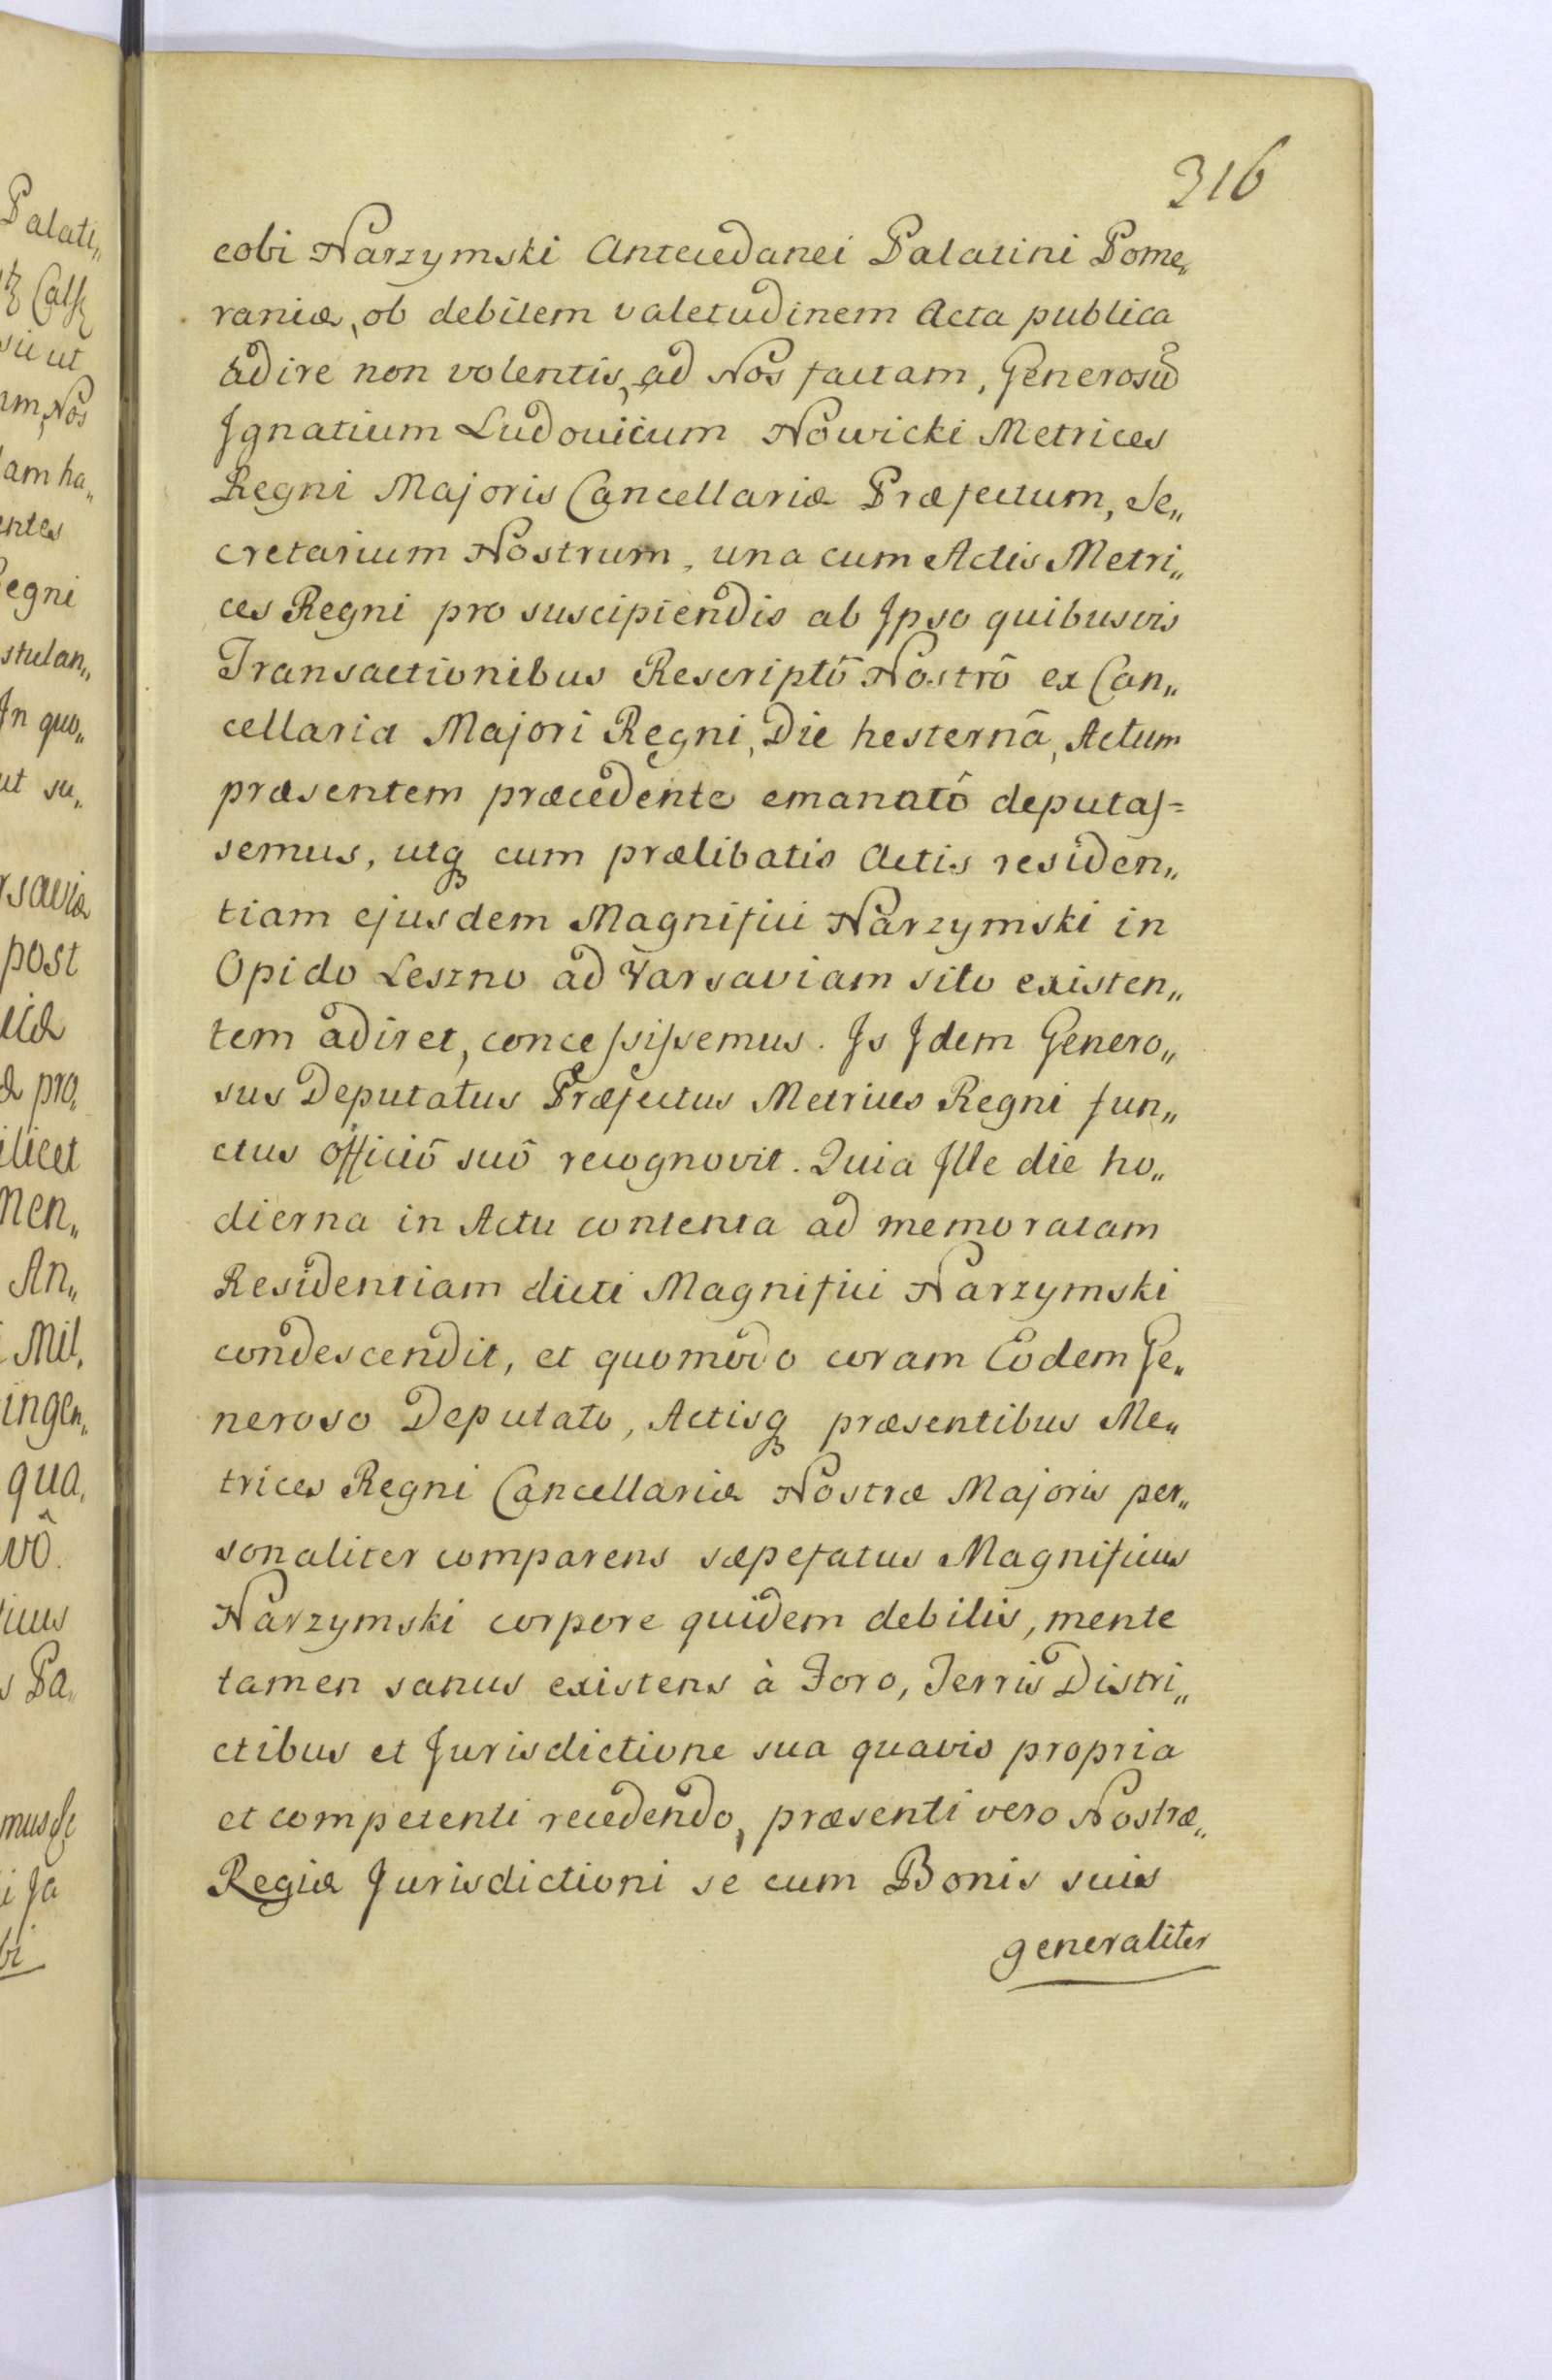 316
cobi Narzymski Antecedanei Palatini Pome„
raniæ, ob debilem valetudinem Acta publica
adire non volentis, ad Nos factam, Generosū
Ignatium Ludovicum Nowicki Metrices
Regni Majoris Cancellariæ Præfectum, Se„
cretarium Nostrum, una cum Actis Metri„
ces Regni pro suscipiendis ab Ipso quibusvis
Transactionibus Rescriptô Nostrô ex Can„
cellaria Majori Regni, Die hesternâ, Actum
præsentem præcedente emanatô deputas=
semus, utq cum prælibatis Actis residen„
tiam ejusdem Magnifici Narzymski in
Opido Leszno ad Varsaviam sito existen„
tem adiret, concessissemus. Is Idem Genero„
sus Deputatus Præfectus Metrices Regni fun„
ctus officiô suô recognovit. Quia Ille die ho„
dierna in Actu contenta ad memoratam
Residentiam dicti Magnifici Narzymski
condescendit, et quomodo coram Eodem Ge„
neroso Deputato, Actisq præsentibus Me„
trices Regni Cancellariæ Nostræ Majoris per„
sonaliter comparens sæpefatus Magnificus
Narzymski corpore quidem debilis, mente
tamen sanus existens à Foro, Terris Distri„
ctibus et Jurisdictione sua quavis propria
et competenti recedendo, præsenti vero Nostræ„
Regiæ Jurisdictioni se cum Bonis suis
generaliter